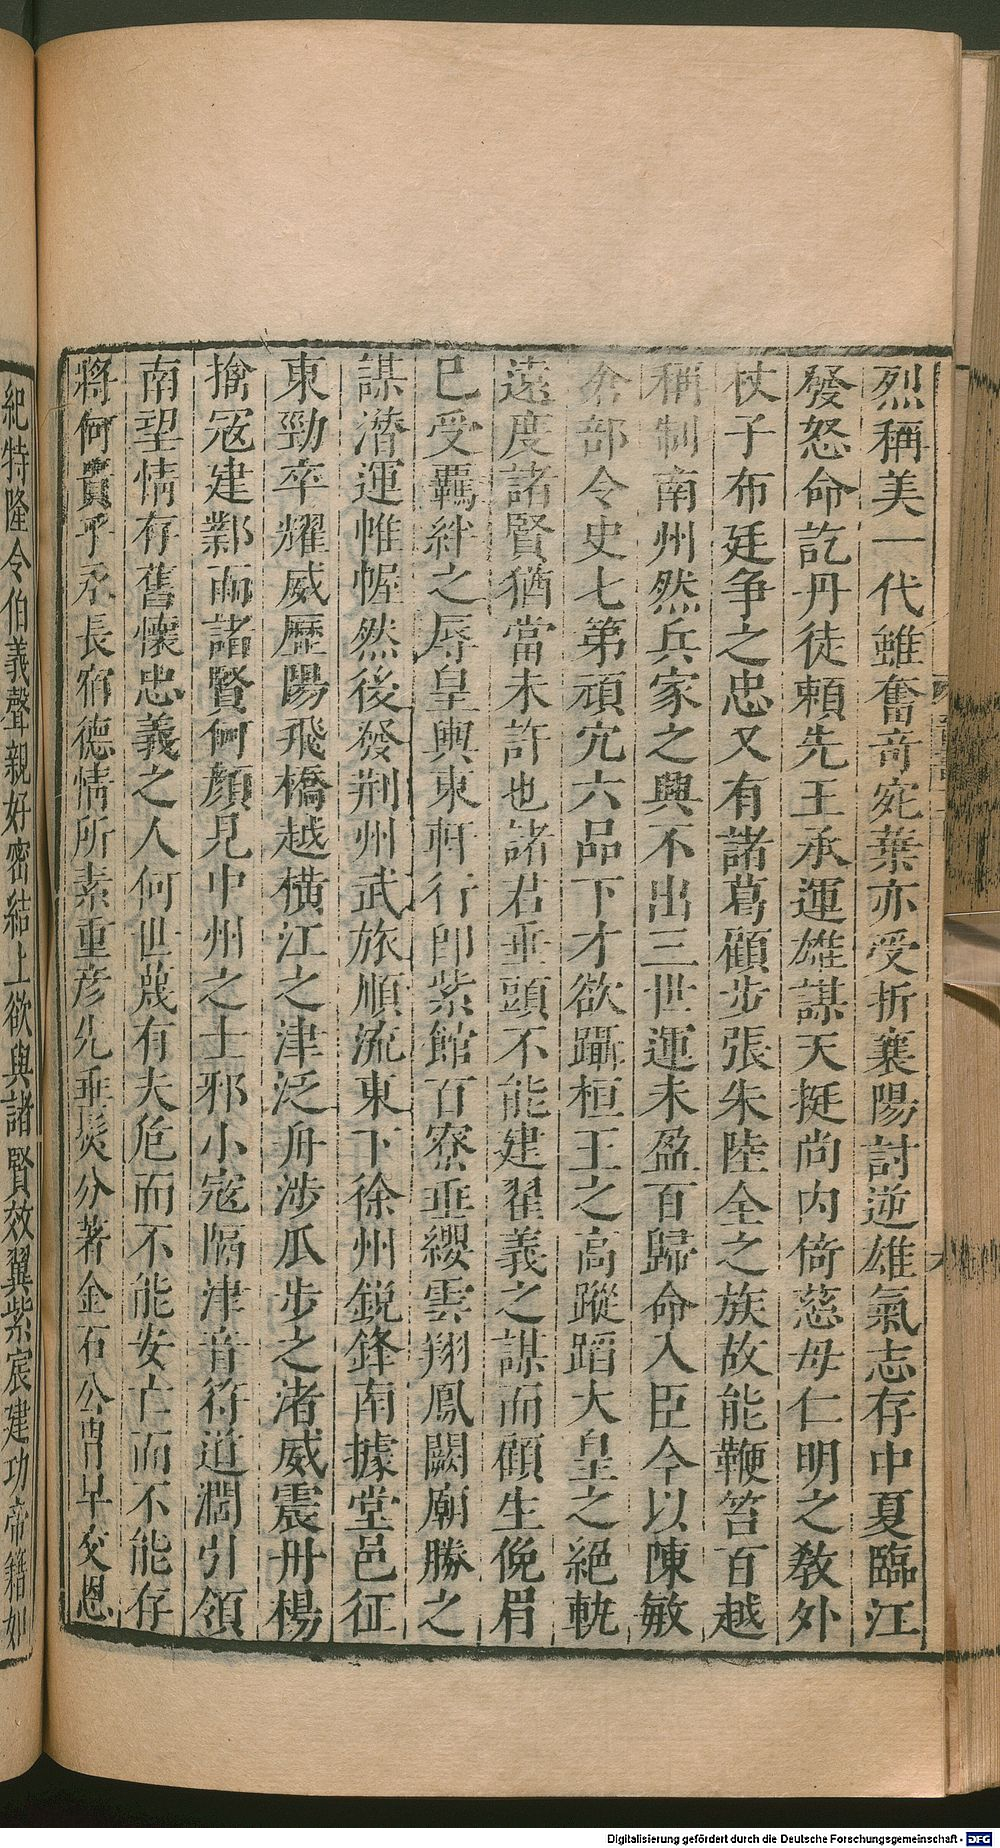 烈稱美一代雖奮奇宛葉亦受折襄陽討逆雄氣志存中夏臨江
發怒命訖丹徒賴先王承運雄謀天挺尚內倚慈母仁明之教外
杖子布廷争之忠又有諸葛顧步張朱陸全之族故能鞭笞百越
稱制南州然兵家之興不出三世運未盈百歸命入臣今以陳敏
倉部令史七第頑冗六品下才欲躡桓王之高蹤蹈大皇之絶軌
遠度諸賢猶當未許也諸君垂頭不能建翟義之謀而顧生俛眉
已受羈絆之辱皇輿東軒行即紫館百寮垂纓雲翔鳳闕廟勝之
謀潛運帷幄然後發荆州武旅順流東下徐州鋭鋒南據堂邑征
東勁卒耀威歷陽飛橋越橫江之津泛舟涉瓜步之渚威震丹楊
擒寇建鄴而諸賢何顔見中州之士邪小寇隔津音符道濶引領
南望情存舊懷忠義之人何世蔑有夫危而不能安亡而不能存
將何貴乎永長宿德情所素重彦先垂髮分著金石公胄早交恩
紀特隆令伯義聲親好密結上欲與諸賢效翼紫宸建功帝籍如
Digitalisierung gefördert durch die Deutsche Forschungsgemeinschaft - DFG